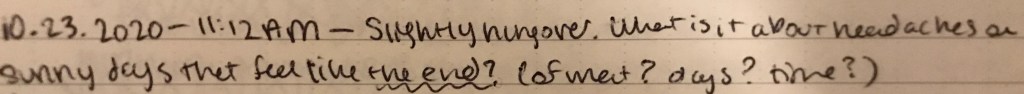 10.23.2020 - 11:12 AM - Slightly hungover. What is it about headaches on
sunny days that feel like the end? (of what? days? time?)